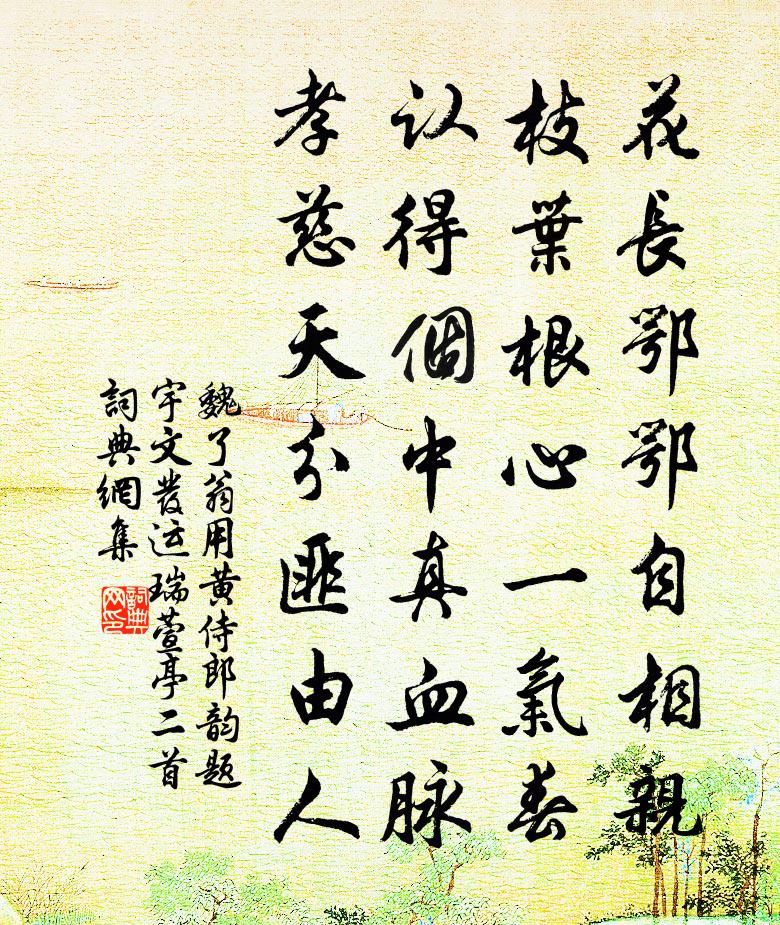 花長鄂鄂自相親
枝葉根心一氣春
认得個中真血脉
孝慈天分匪由人
魏了翁用黄侍郎韵题
宇文發运瑞萱亭二首
詞典網集
詞典网印